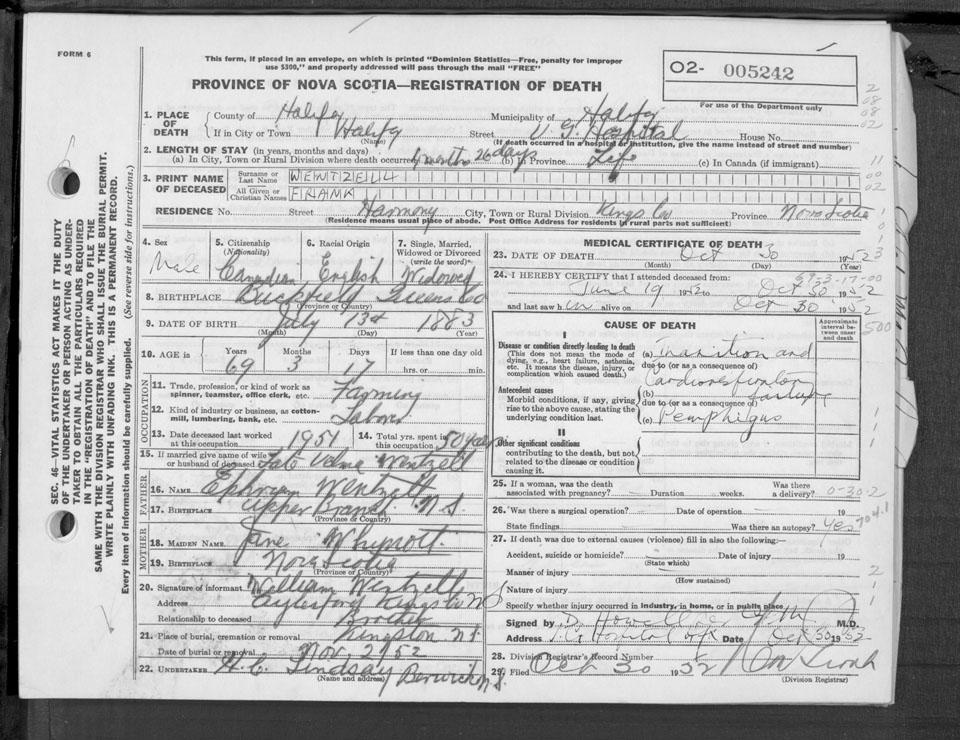 FORM 6
This form, if placed in an envelope, on which is printed "Dominion Statistics—Free, penalty for improper
use $300," and properly addressed will pass through the mail "FREE"
PROVINCE OF NOVA SCOTIA—REGISTRATION OF DEATH
O2- 005242
For use of the Department only
1. PLACE OF DEATH
County of Halifax Municipality of Halifax
If in City or Town Halifax Street V. G. Hospital House No.
(Name) (If death occurred in a hospital or institution, give the name instead of street and number)
2. LENGTH OF STAY (in years, months and days)
(a) In City, Town or Rural Division where death occurred 4 months 26 days (b) In Province Life (c) In Canada (if immigrant)
3. PRINT NAME OF DECEASED
Surname or Last Name WENTZELL
All Given or Christian Names FRANK
RESIDENCE No. Street Harmony City, Town or Rural Division Kings Co Province Nova Scotia
(Residence means usual place of abode. Post Office Address for residents in rural parts not sufficient)
4. Sex Male
5. Citizenship (Nationality) Canadian
6. Racial Origin English
7. Single, Married, Widowed or Divorced (write the word) Widowed
8. BIRTHPLACE Buckfield Queens Co
(Province or Country)
9. DATE OF BIRTH July 13th 1883
(Month) (Day) (Year)
10. AGE in Years Months Days If less than one day old
69 3 17 hrs. or min.
OCCUPATION
11. Trade, profession, or kind of work as spinner, teamster, office clerk, etc. Farming
12. Kind of industry or business, as cotton-mill, lumbering, bank, etc. Labor
13. Date deceased last worked at this occupation 1951
14. Total yrs. spent in this occupation 50 years
15. If married give name of wife or husband of deceased Late Velma Wentzell
FATHER
16. NAME Ephriam Wentzell
17. BIRTHPLACE Upper Branch N S
(Province or Country)
MOTHER
18. MAIDEN NAME Jane Whynott
19. BIRTHPLACE Nova Scotia
(Province or Country)
20. Signature of informant William Wentzell
Address Aylesford Kings Co N S
Relationship to deceased Brother
21. Place of burial, cremation or removal Kingston N.S.
Date of burial or removal Nov. 2 1952
22. UNDERTAKER H. C. Lindsay Berwick N.S.
(Name and address)
MEDICAL CERTIFICATE OF DEATH
23. DATE OF DEATH Oct 30 1952
(Month) (Day) (Year)
24. I HEREBY CERTIFY that I attended deceased from:
June 19 1952 to Oct 30 1952
and last saw him alive on Oct 30 1952
CAUSE OF DEATH
Approximate interval between onset and death
I
Disease or condition directly leading to death
(This does not mean the mode of dying, e.g., heart failure, asthenia, etc. It means the disease, injury, or complication which caused death.)
(a) Inanition and
due to (or as a consequence of)
Cardiorespiratory
Antecedent causes
Morbid conditions, if any, giving rise to the above cause, stating the underlying condition last.
(b) failure
due to (or as a consequence of)
(c) Pemphigus
II
Other significant conditions
contributing to the death, but not related to the disease or condition causing it.
25. If a woman, was the death associated with pregnancy? Duration weeks. Was there a delivery?
0-30-2
26. Was there a surgical operation? Date of operation 19
State findings Was there an autopsy? Yes
704.1
27. If death was due to external causes (violence) fill in also the following:—
Accident, suicide or homicide? Date of injury 19
(State which)
Manner of injury
(How sustained)
Nature of injury
Specify whether injury occurred in industry, in home, or in public place
Signed by D. Howell M.D.
Address V. G. Hospital Hfx Date Oct 30 1952
28. Division Registrar's Record Number
29. Filed Oct 30 1952
(Division Registrar)
SEC. 46—VITAL STATISTICS ACT MAKES IT THE DUTY
OF THE UNDERTAKER OR PERSON ACTING AS UNDER-
TAKER TO OBTAIN ALL THE PARTICULARS REQUIRED
IN THE "REGISTRATION OF DEATH" AND TO FILE THE
SAME WITH THE DIVISION REGISTRAR WHO SHALL ISSUE THE BURIAL PERMIT.
WRITE PLAINLY WITH UNFADING INK. THIS IS A PERMANENT RECORD.
Every item of information should be carefully supplied. (See reverse side for instructions.)